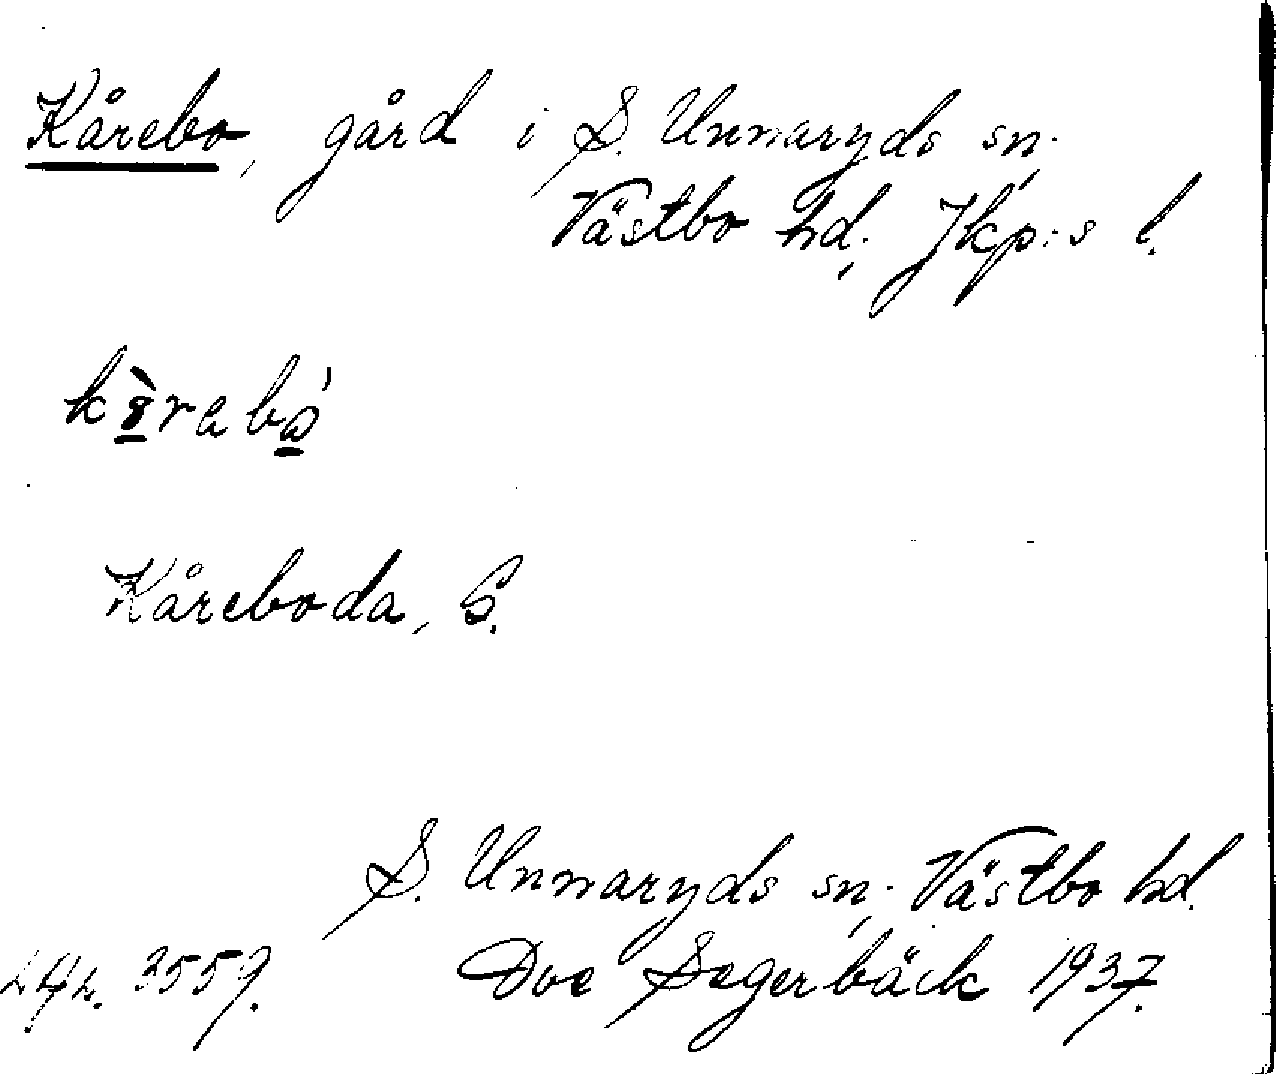 Kårebo, gård i S. Unnaryds sn;
Västbo hd; Jkp:s l.
Kåreboda, G.
S. Unnaryds sn; Västbo hd.
3559. Segerbäck 1937.